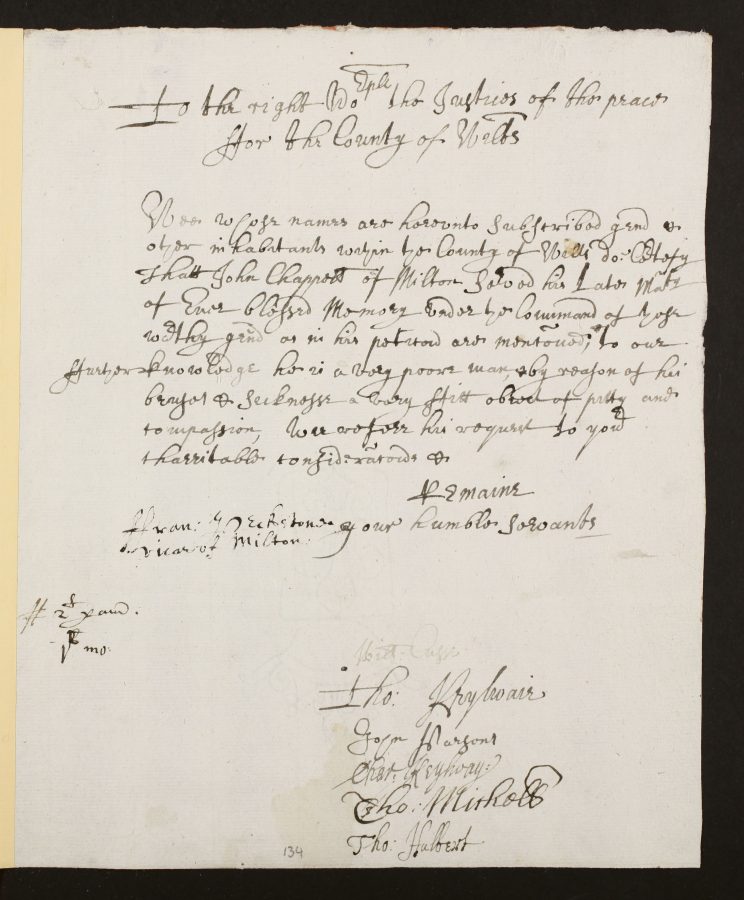 To the right Wor pll the Justices of the peace
ffor the County of Wilts
Wee whose names are hereonto Subscribed gend &
other inhabitants within the County of Wilts doe Certefy
Thatt John Chappell of Milton Served his Late Maty
of Ever blessed Memory under the Command of those
worthy gend as in his peticon are mentioned, to our
ffurther knowledge he is a very poore man, & by reason of his
bruses & Secknesse a very ffitt obiect of pitty and
Compassion, Wee referr his request to your
charritable consideratcons &
Remaine
your humble Servants
ffran:
vicar of Milton:
2s
mo:
Tho:
John Parsons
Tho: Michell
Tho: Hulbert
134